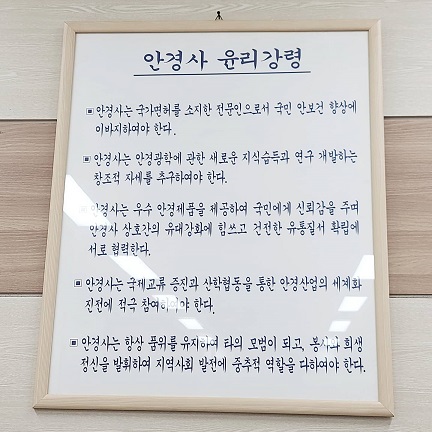 안경사 윤리강령
▣ 안경사는 국가면허를 소지한 전문인으로서 국민 안보건 향상에
이바지하여야 한다.
▣ 안경사는 안경광학에 관한 새로운 지식습득과 연구 개발하는
창조적 자세를 추구하여야 한다.
▣ 안경사는 우수 안경제품을 제공하여 국민에게 신뢰감을 주며
안경사 상호간의 유대강화에 힘쓰고 건전한 유통질서 확립에
서로 협력한다.
▣ 안경사는 국제교류 증진과 산학협동을 통한 안경산업의 세계화
진전에 적극 참여하여야 한다.
▣ 안경사는 항상 품위를 유지하여 타의 모범이 되고, 봉사와 희생
정신을 발휘하여 지역사회 발전에 중추적 역할을 다하여야 한다.